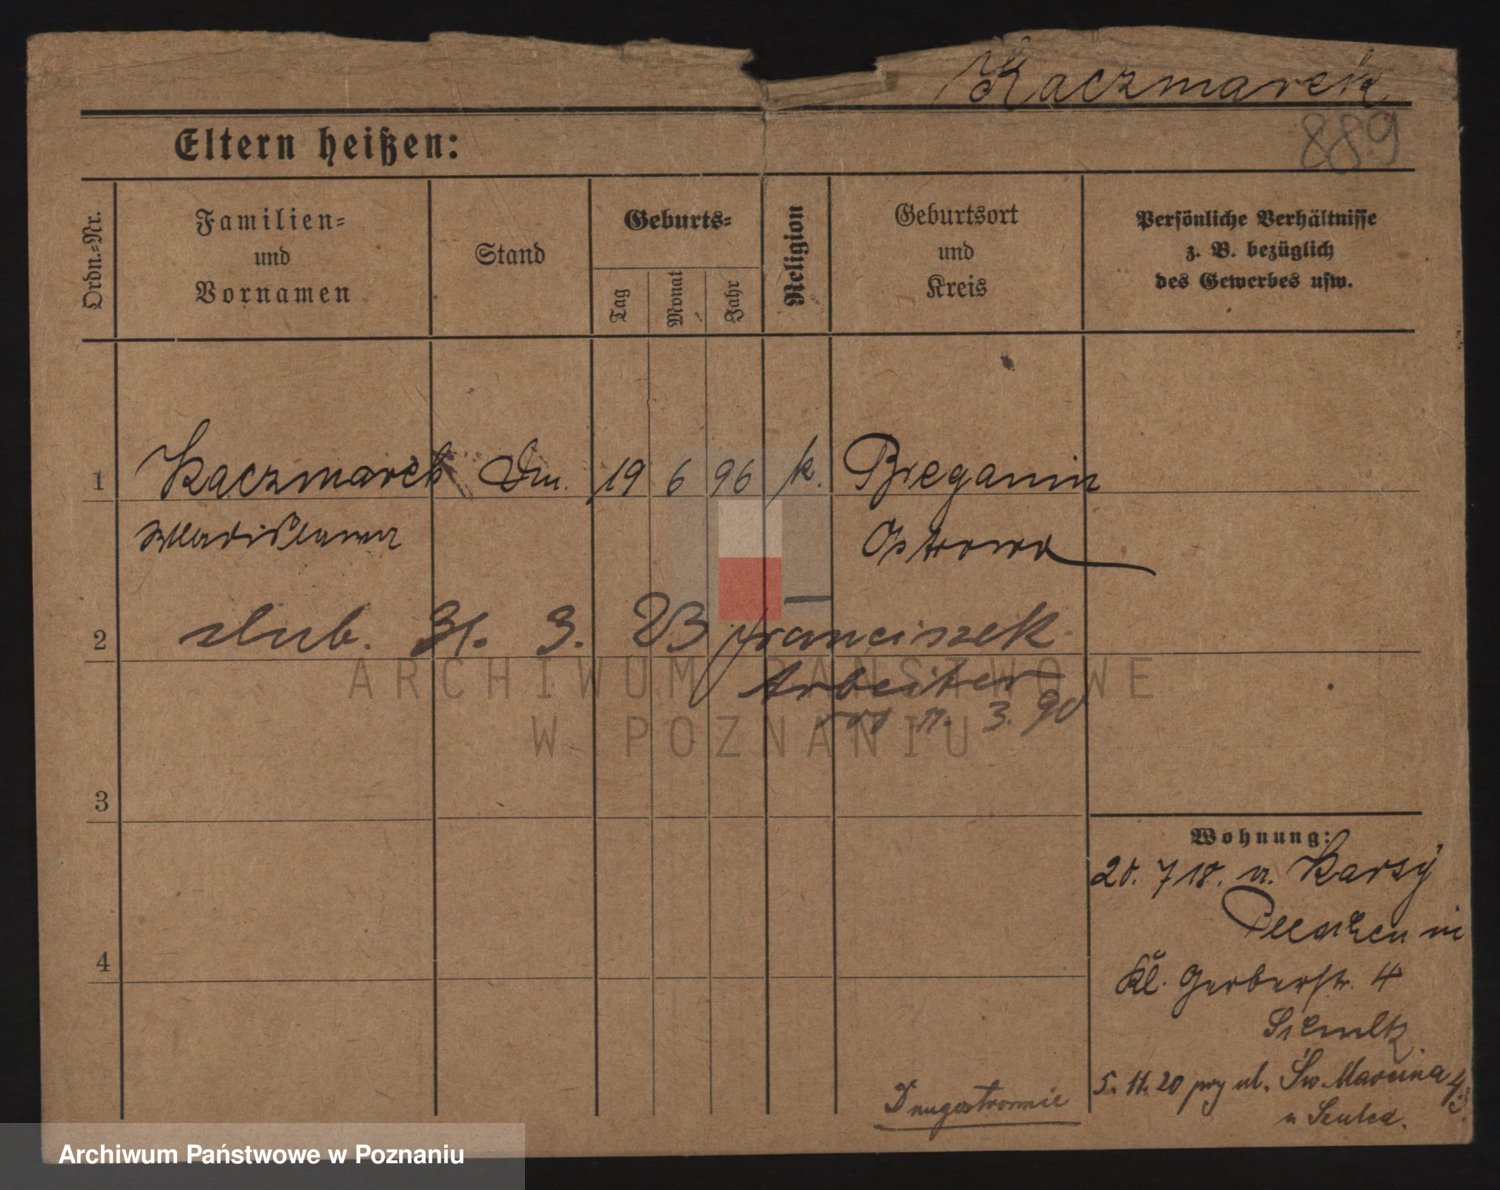 Kaczmarek
889
Eltern heißen:
Ordn.-Nr.
Familien-
und
Vornamen
Stand
Geburts-
Tag
Monat
Jahr
Religion
Geburtsort
und
Kreis
Persönliche Verhältnisse
z. B. bezüglich
des Gewerbes usw.
1 Kaczmarek 19 6 96 k. Bieganin
Wladislawa Ostrowo
2 slub. 31. 3. 23 Franciszek
Arbeiter
3. 90
3
Wohnung:
20. 7 18. n. Karsy
4
Kl. Gerberstr. 4
5. 11. 20 przy ul. Św. Marcina
u Szulca.
ARCHIWUM PAŃSTWOWE
W POZNANIU
Archiwum Państwowe w Poznaniu